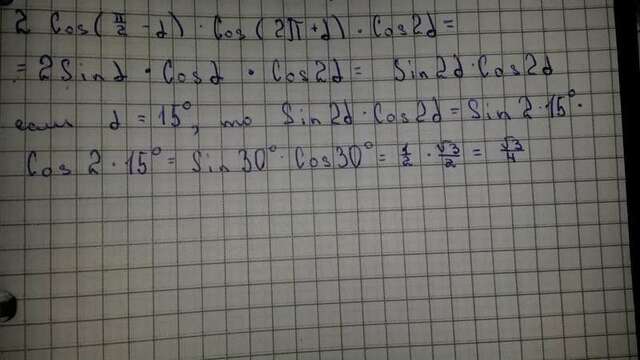 2 Cos(π/2 - α) · Cos(2π + α) · Cos2α =
= 2Sinα · Cosα · Cos2α = Sin2α · Cos2α
если α = 15°, то Sin2α · Cos2α = Sin2·15° ·
Cos 2·15° = Sin30° · Cos30° = 1/2 · √3/2 = √3/4